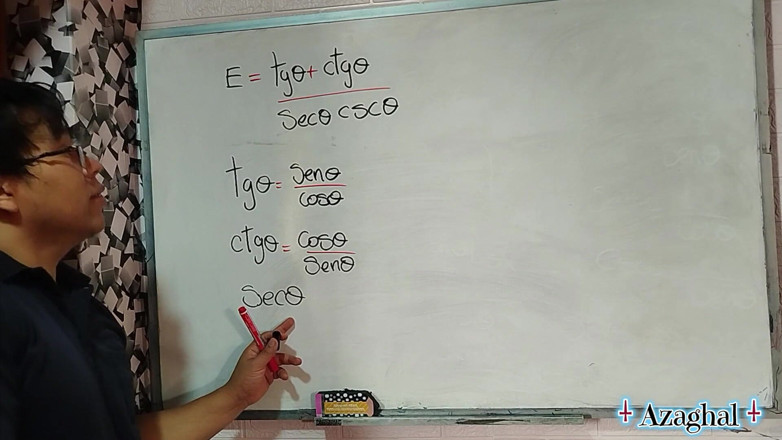 E = tgθ + ctgθ
secθ cscθ
tgθ = senθ
cosθ
ctgθ = cosθ
senθ
secθ
Azaghal